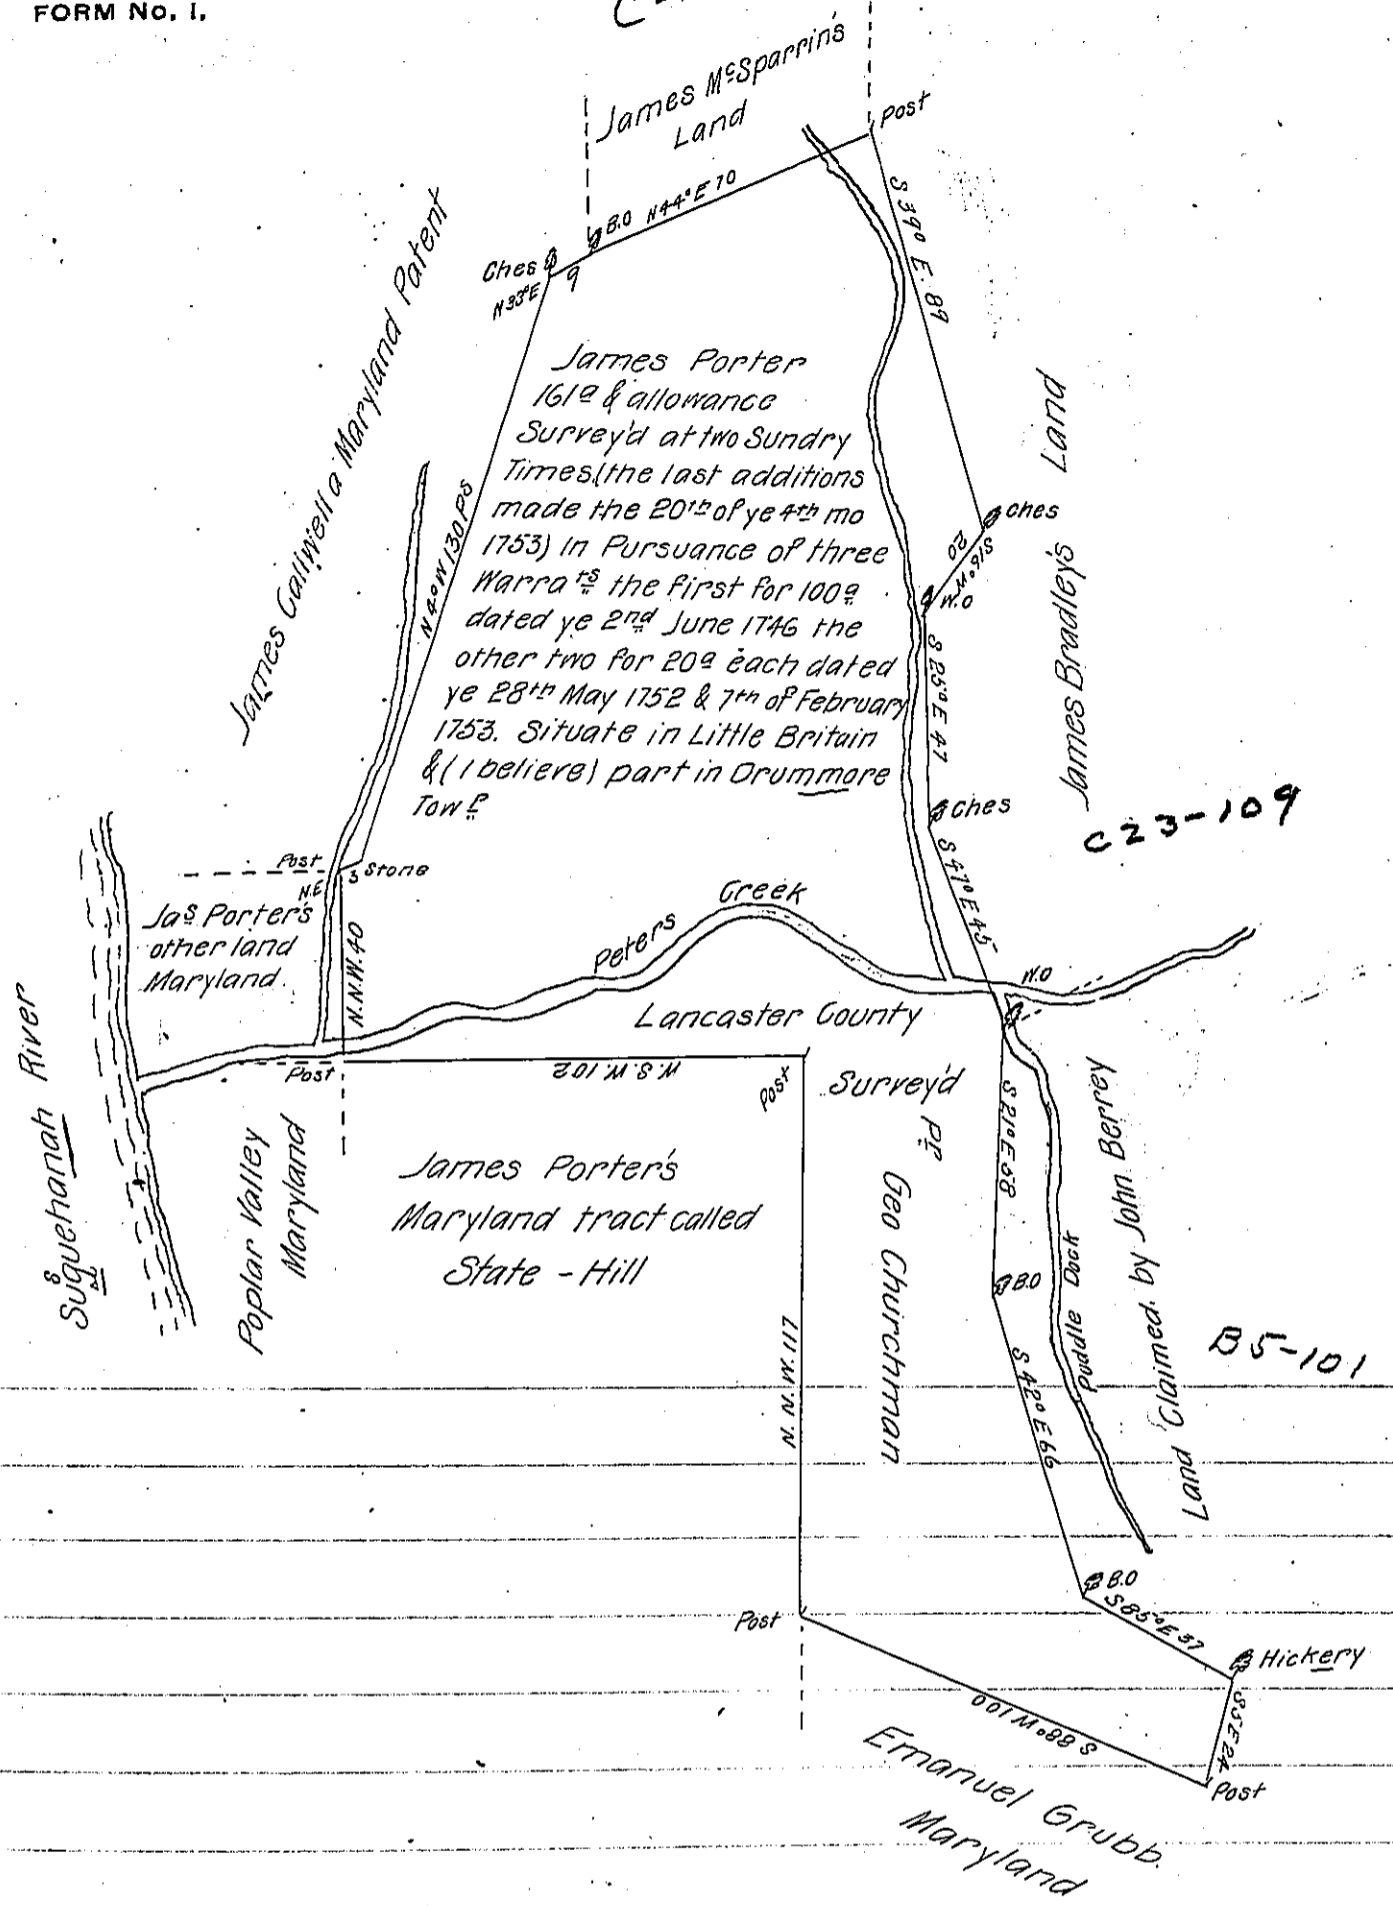 FORM No. 1.
James McSparrin's
Land
Post
B.O N44°E 70
Ches
N33°E
9
S 39° E 89
James Caliwell a Maryland Patent
James Porter
161a & allowance
Survey'd at two Sundry
Times (the last additions
made the 20th of ye 4th mo
1753) In Pursuance of three
Warra ts the first for 100a
dated ye 2nd June 1746 the
other two for 20a each dated
ye 28th May 1752 & 7th of February
1753. Situate in Little Britain
& (I believe) part in Drummore
Tow p
N 4° W 130 Ps
Ches
S16°W
20
W.O
S 25° E 47
James Bradley's Land
Ches
C23-109
S 47° E 45
Post
N.E
3 Stone
Jas Porter's
other land
Maryland.
N.N.W. 40
Peters Creek
W.O
Lancaster County
Susquehanah River
Post
W.S.W. 102
Post
Survey'd
pr
Geo Churchman
S 21° E 58
Poplar Valley
Maryland
James Porter's
Maryland tract called
State - Hill
B.O
Puddle Dock
Land Claimed by John Berrey
B5-101
N.N.W. 117
S 42° E 66
B.O
S 85° E 37
Post
Hickery
S 88° W 100
S5E24
Post
Emanuel Grubb.
Maryland